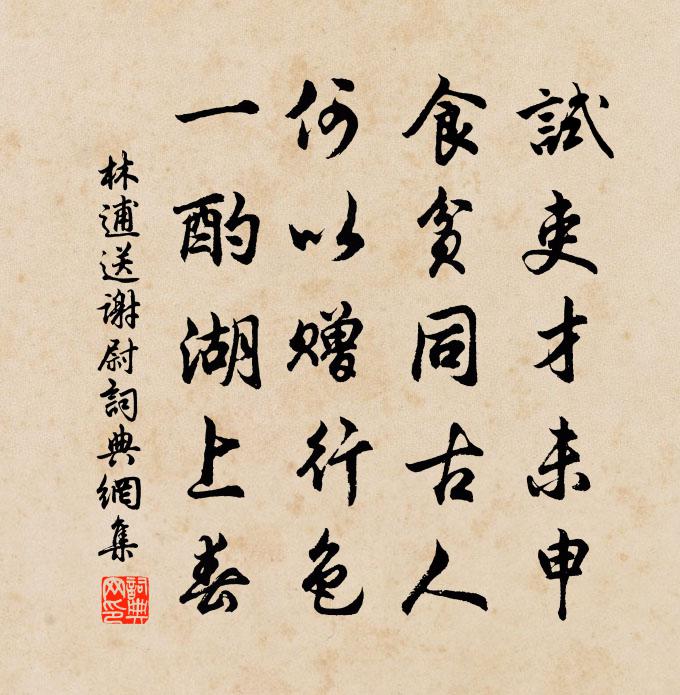 試吏才未申
食貧同古人
何以贈行色
一酌湖上春
林逋送謝尉詞典網集
詞典網印